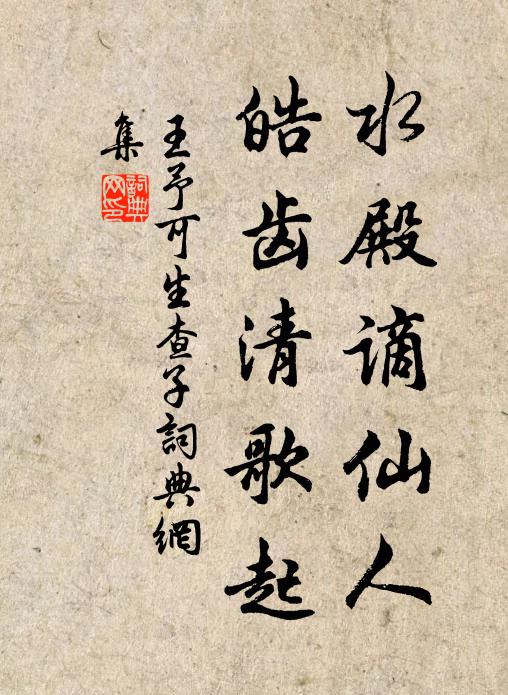 水殿谪仙人
皓齿清歌起
王予可生查子詞典網
集
詞典网印